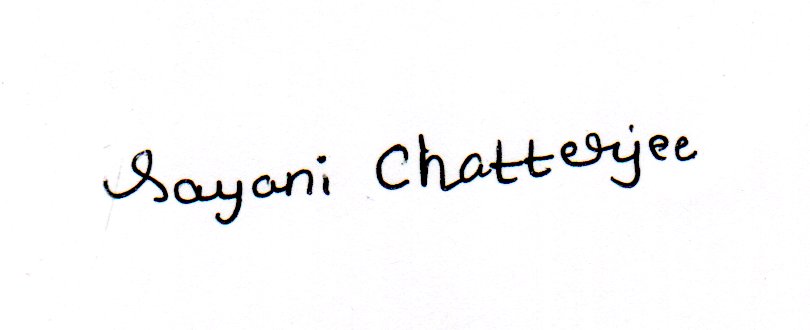 Sayani Chatterjee